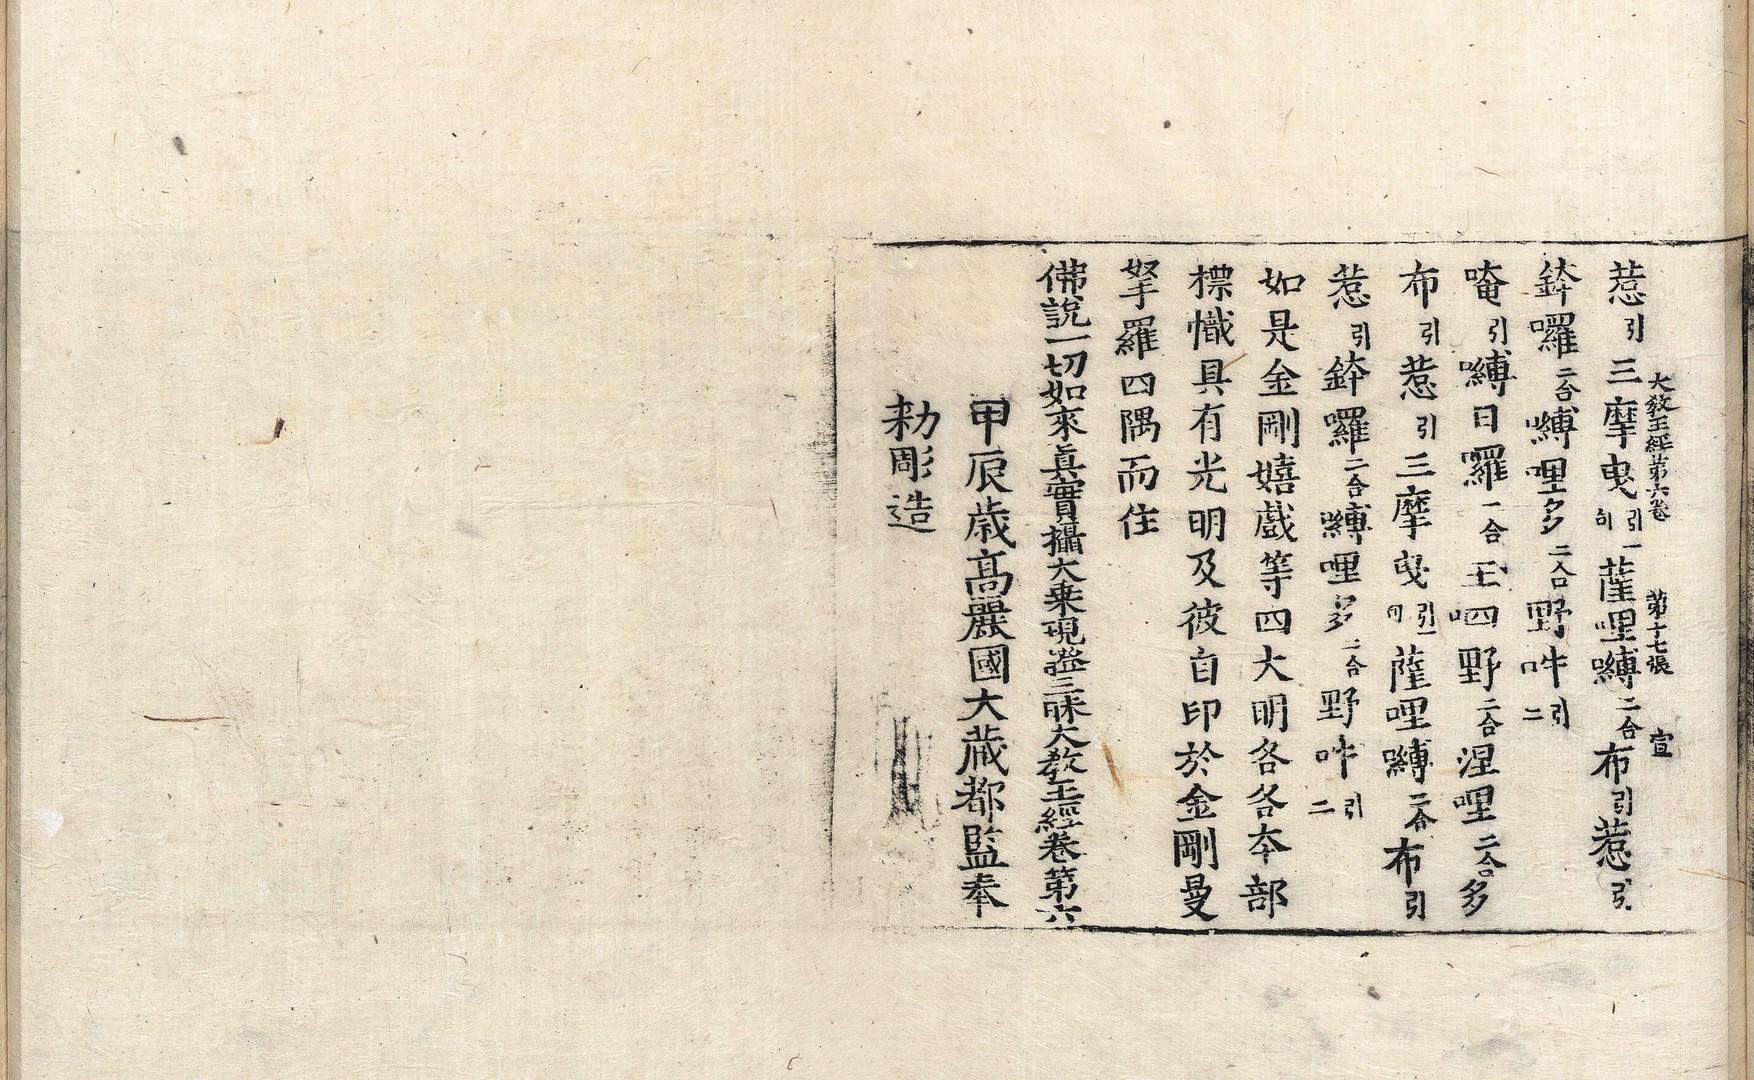 大教王經第六卷　第十七張　宣
惹引三摩曳引一句薩哩嚩二合布引惹引
鉢囉二合嚩哩多二合野吽引二
唵引嚩日囉一合王四野二合涅哩二合多
布引惹引三摩曳引一句薩哩嚩二合布引
惹引鉢囉二合嚩哩多二合野吽引二
如是金剛嬉戲等四大明各各本部
摽幟具有光明及彼自印於金剛曼
拏羅四隅而住
佛說一切如來眞實攝大乘現證三昧大教王經卷第六
甲辰歲高麗國大藏都監奉
勅彫造